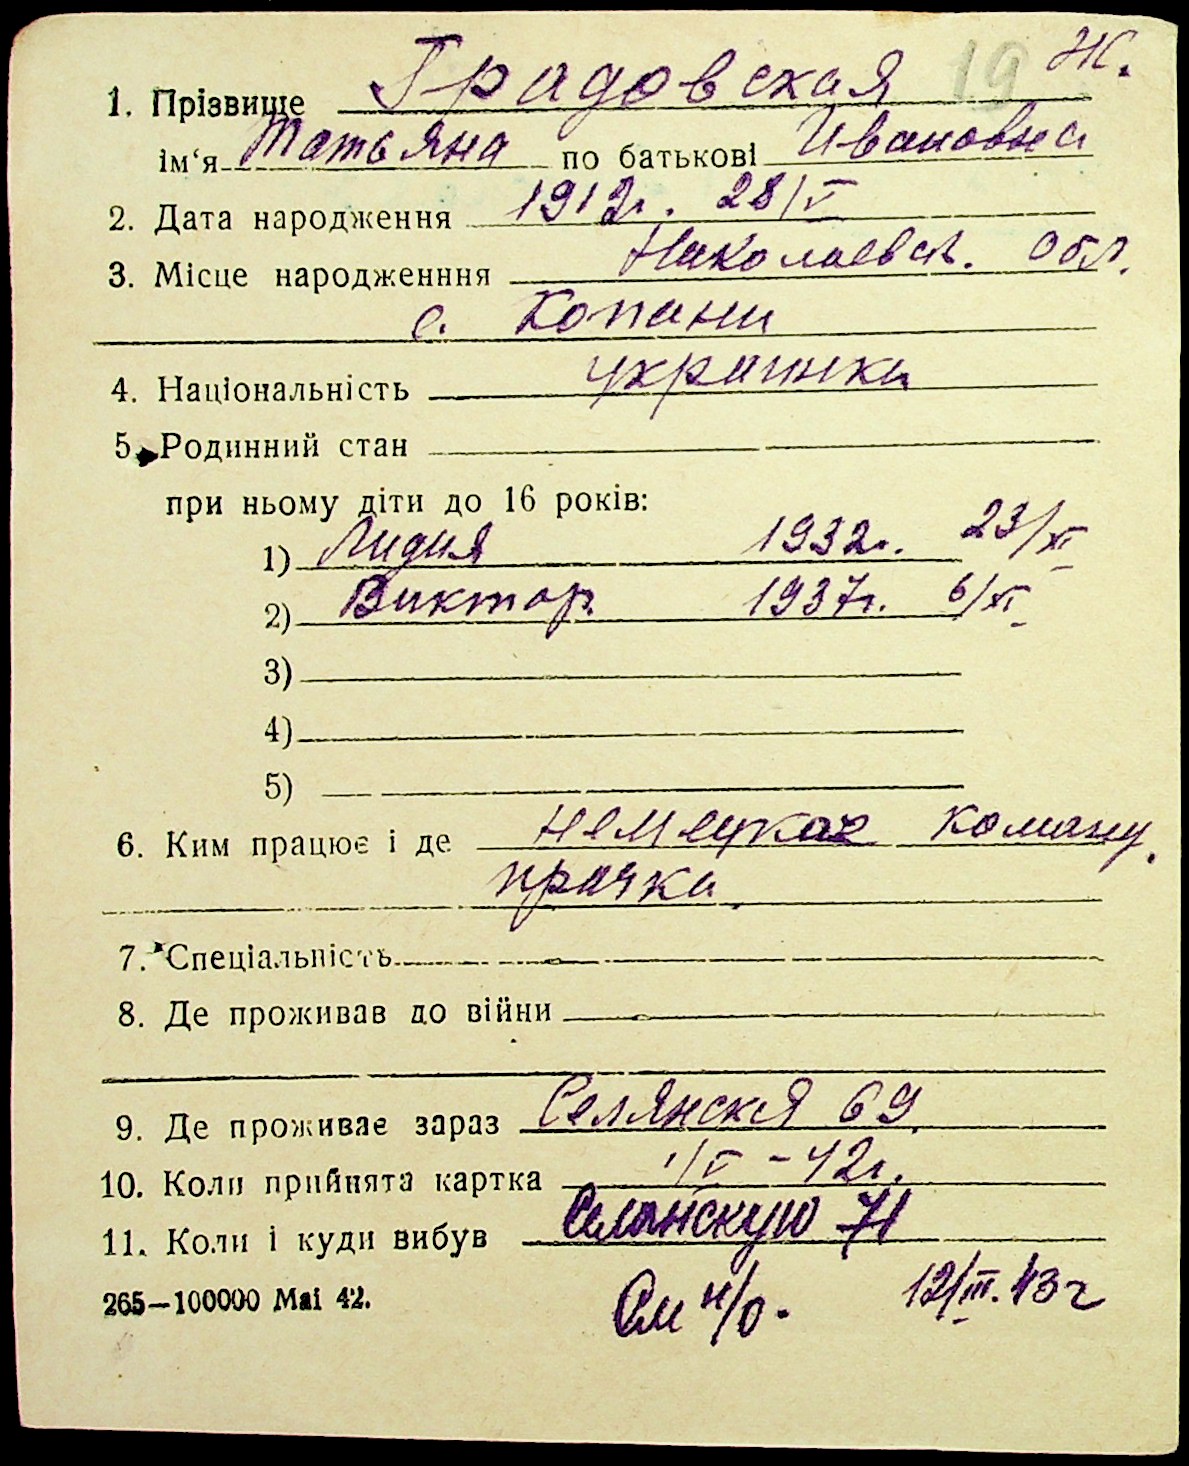 19 Ж.
1. Прізвище Градовская
ім‘я Татьяна по батькові Ивановна
2. Дата народження 1912г. 28/V
3. Місце народженння Николаевск. Обл.
с. Копани
4. Національність украинка
5. Родинний стан
при ньому діти до 16 років:
1) Лидия 1932г. 23/XI
2) Виктор 1937г. 6/XI
3)
4)
5)
6. Ким працює і де немецкая команд.
прачка
7. Спеціальність
8. Де проживав до війни
9. Де проживає зараз Селянскя 69
10. Коли прийнята картка 1/V - 42г.
11. Коли і куди вибув Селянскую 71
265—100000 Mai 42. См н/о. 12/III. 43 г